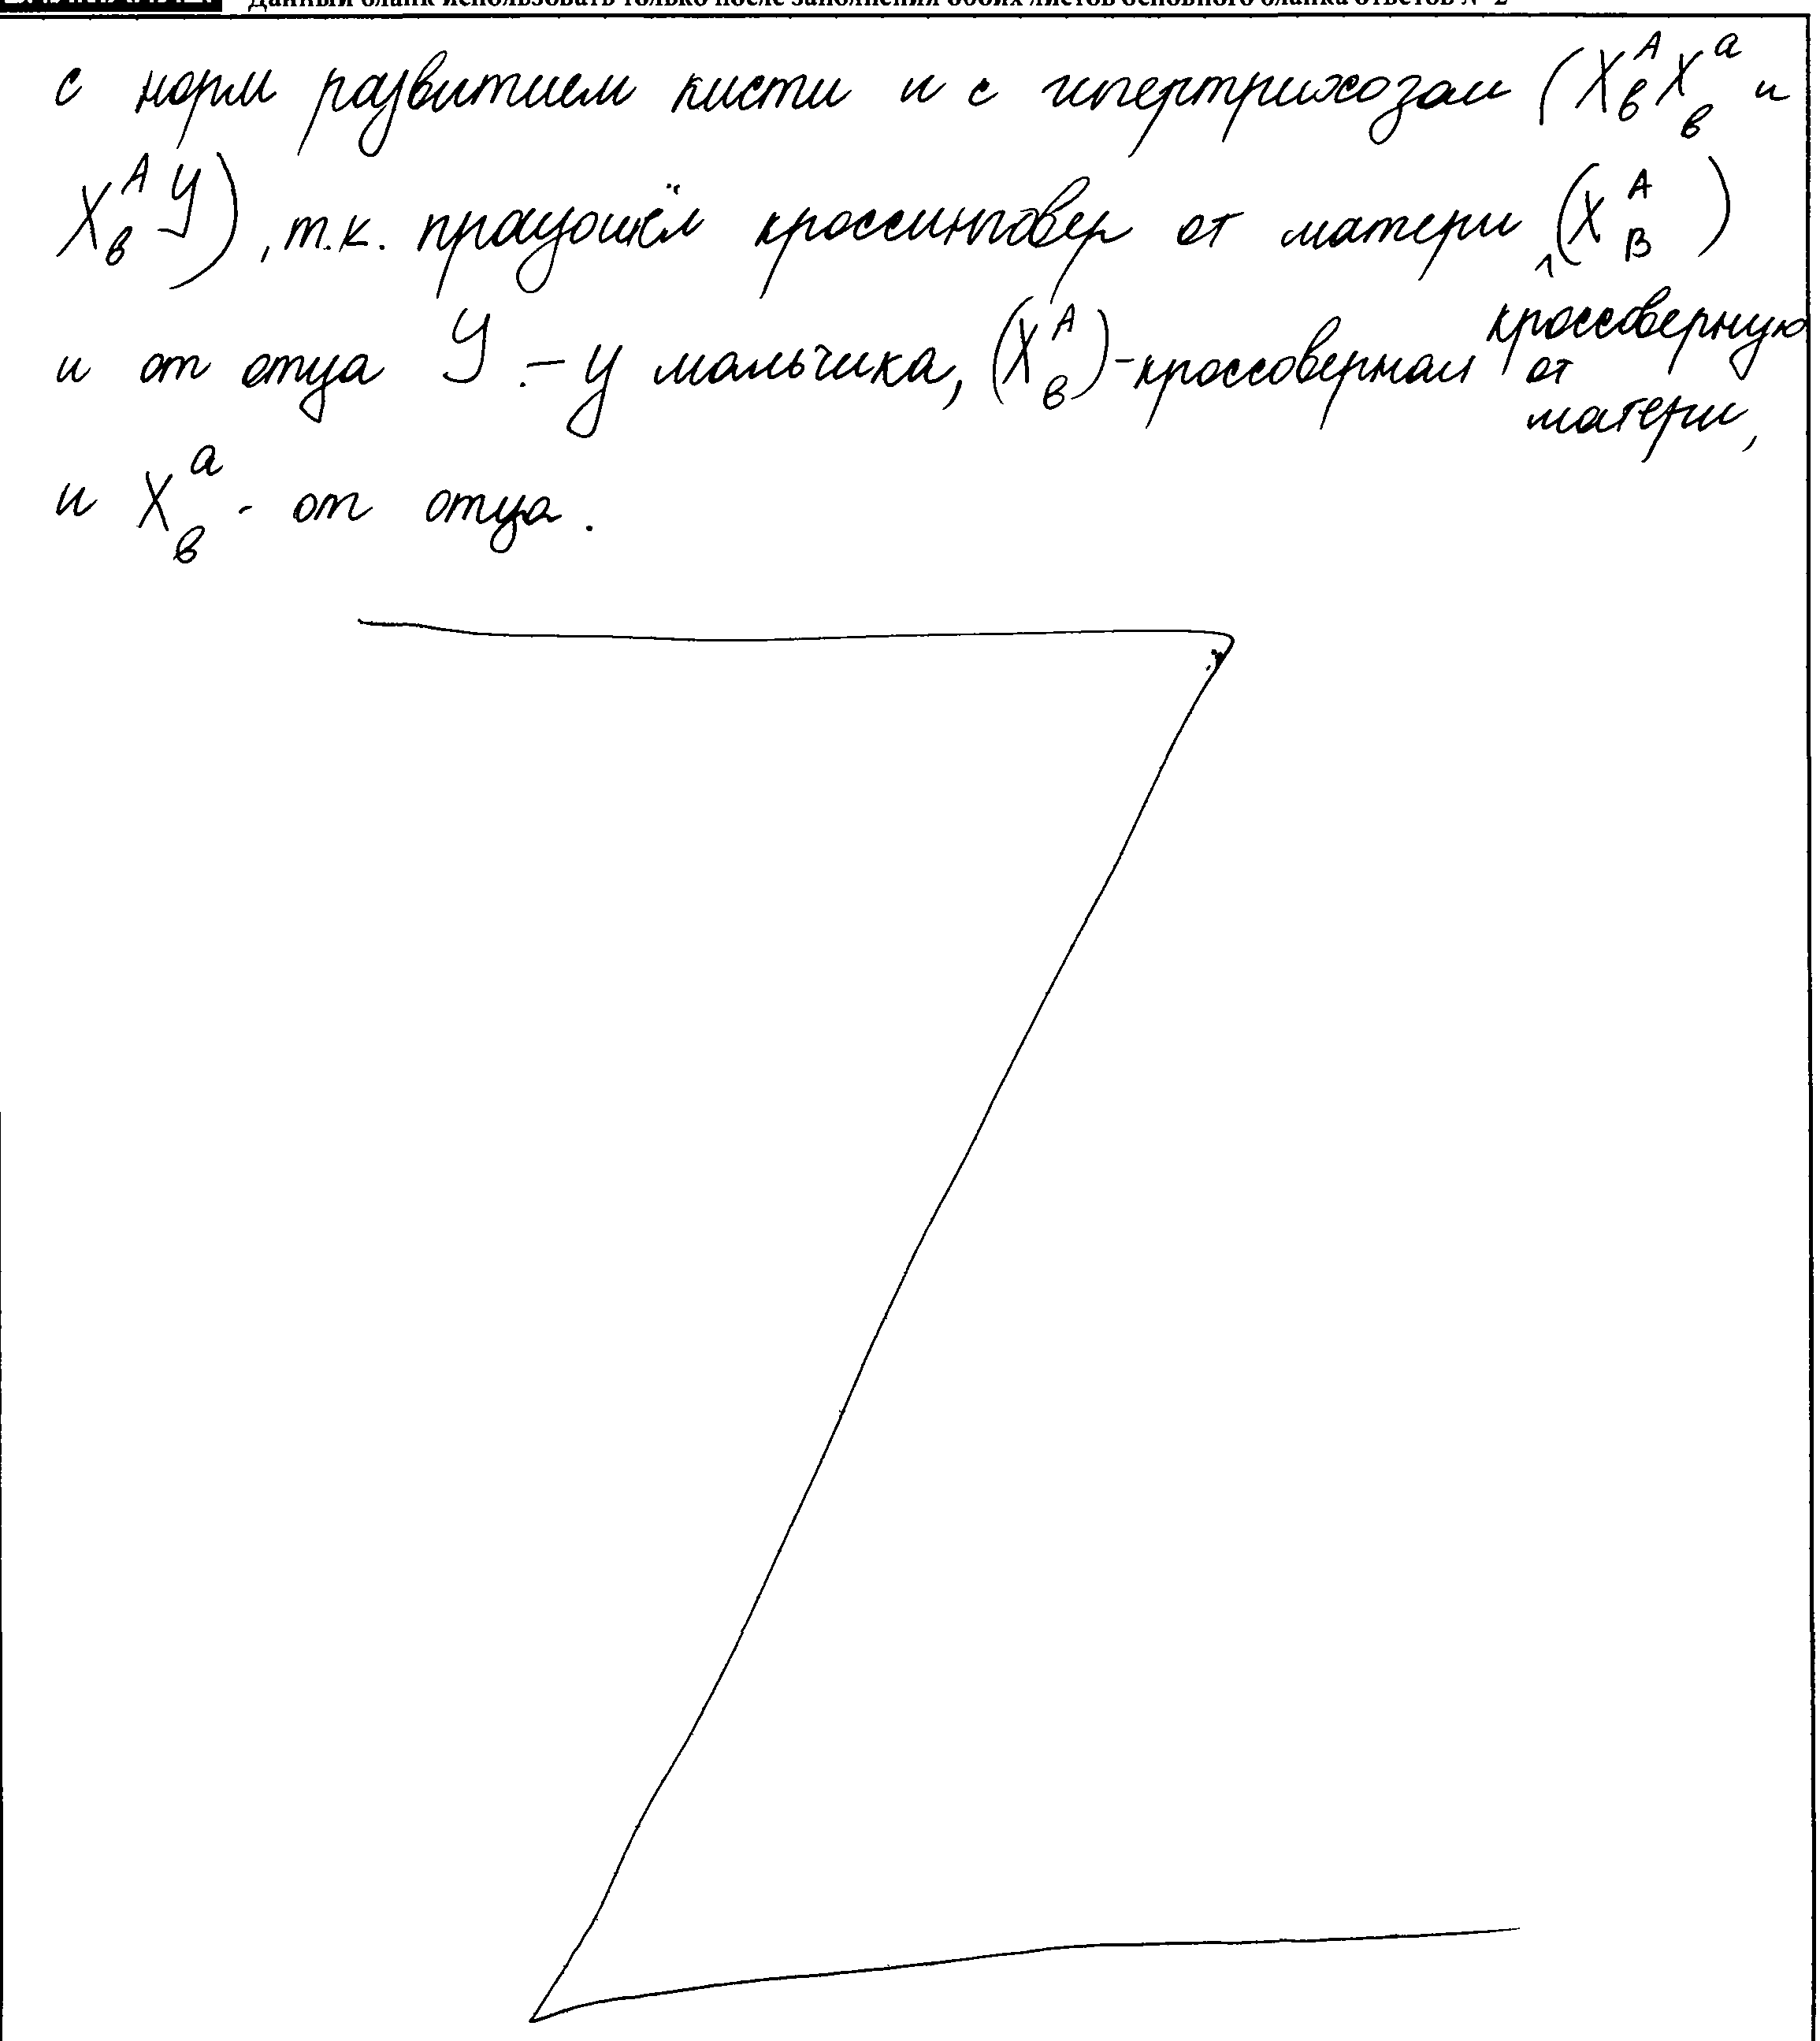 Данный бланк использовать только после заполнения обоих листов основного бланка ответов № 2
с норм развитием кисти и с гипертрихозом (X^A_в X^a_в и
X^A_в У), т.к. произошёл кроссинговер от матери (X^A_B)
кроссоверную
и от отца У - у мальчика, (X^A_в)-кроссоверная от
матери,
и X^a_в - от отца.